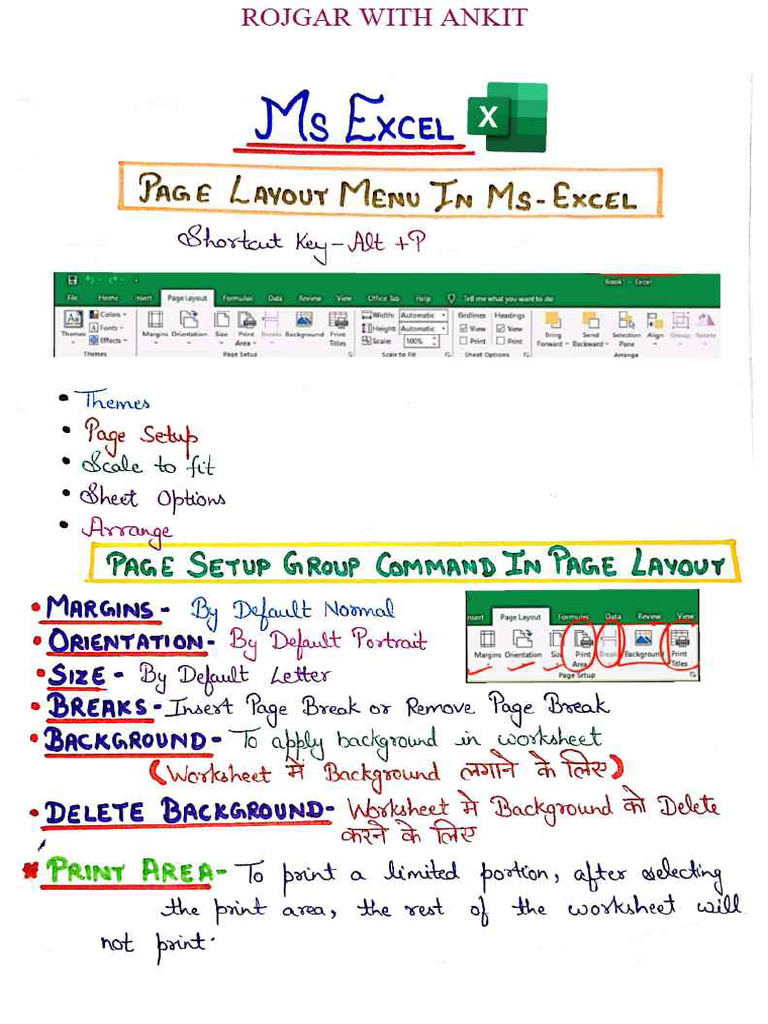 ROJGAR WITH ANKIT
MS EXCEL
X
PAGE LAYOUT MENU IN MS-EXCEL
Shortcut Key - Alt + P
Book1 - Excel
File Home Insert Page Layout Formulas Data Review View Office Tab Help Tell me what you want to do
Themes Colors Fonts Effects
Margins Orientation Size Print Area Breaks Background Print Titles
Width: Automatic
Height: Automatic
Scale: 100%
Gridlines Headings
View View
Print Print
Bring Forward Send Backward Selection Pane Align Group Rotate
Themes Page Setup Scale to Fit Sheet Options Arrange
• Themes
• Page Setup
• Scale to fit
• Sheet Options
• Arrange
PAGE SETUP GROUP COMMAND IN PAGE LAYOUT
• MARGINS - By Default Normal
• ORIENTATION - By Default Portrait
• SIZE - By Default Letter
nsert Page Layout Formulas Data Review View
Margins Orientation Size Print Area Breaks Background Print Titles
Page Setup
• BREAKS - Insert Page Break or Remove Page Break
• BACKGROUND - To apply background in worksheet
(Worksheet में Background लगाने के लिए)
• DELETE BACKGROUND - Worksheet मे Background को Delete
करने के लिए
* PRINT AREA - To print a limited portion, after selecting
the print area, the rest of the worksheet will
not print.